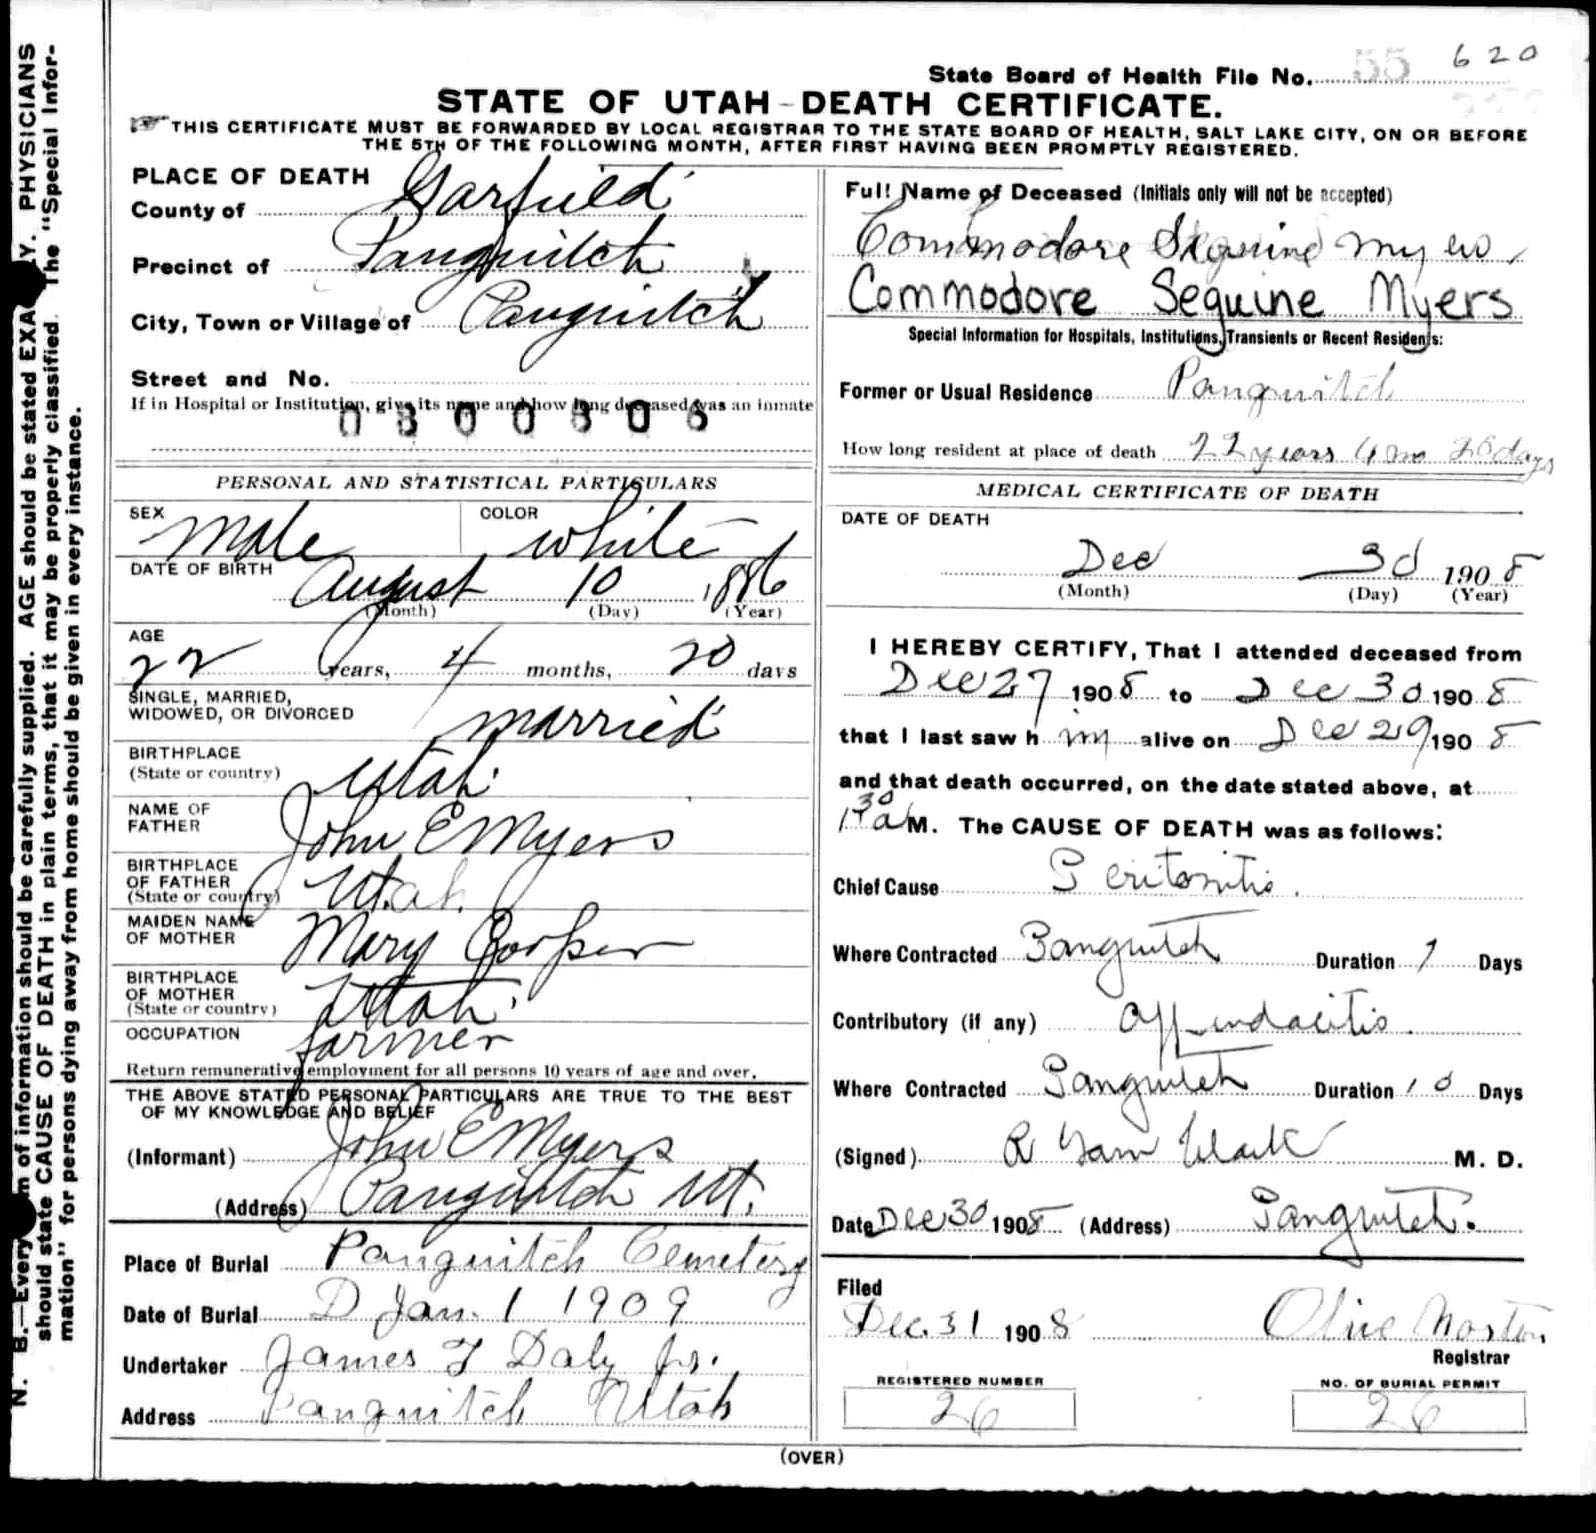 620
State Board of Health File No. 55
STATE OF UTAH - DEATH CERTIFICATE.
THIS CERTIFICATE MUST BE FORWARDED BY LOCAL REGISTRAR TO THE STATE BOARD OF HEALTH, SALT LAKE CITY, ON OR BEFORE
THE 5TH OF THE FOLLOWING MONTH, AFTER FIRST HAVING BEEN PROMPTLY REGISTERED.
PLACE OF DEATH
County of Garfield
Precinct of Panguitch
City, Town or Village of Panguitch
Street and No.
If in Hospital or Institution, give its name and how long deceased was an inmate
0300806
PERSONAL AND STATISTICAL PARTICULARS
SEX Male COLOR White
DATE OF BIRTH August 10 1886
(Month) (Day) (Year)
AGE
22 years, 4 months, 20 days
SINGLE, MARRIED,
WIDOWED, OR DIVORCED married
BIRTHPLACE
(State or country) Utah
NAME OF
FATHER John E Myers
BIRTHPLACE
OF FATHER
(State or country) Utah
MAIDEN NAME
OF MOTHER Mary Cooper
BIRTHPLACE
OF MOTHER
(State or country) Utah
OCCUPATION farmer
Return remunerative employment for all persons 10 years of age and over.
THE ABOVE STATED PERSONAL PARTICULARS ARE TRUE TO THE BEST
OF MY KNOWLEDGE AND BELIEF
(Informant) John E Myers
(Address) Panguitch Ut.
Place of Burial Panguitch Cemetery
Date of Burial D Jan. 1 1909
Undertaker James T Daly Jr.
Address Panguitch Utah
Full Name of Deceased (Initials only will not be accepted)
Commodore Sequine Myers
Commodore Sequine Myers
Special Information for Hospitals, Institutions, Transients or Recent Residents:
Former or Usual Residence Panguitch
How long resident at place of death 22 years 4 mo 20 days
MEDICAL CERTIFICATE OF DEATH
DATE OF DEATH
Dec 30 1908
(Month) (Day) (Year)
I HEREBY CERTIFY, That I attended deceased from
Dec 27 1908 to Dec 30 1908
that I last saw h im alive on Dec 29 1908
and that death occurred, on the date stated above, at
1 30 a M. The CAUSE OF DEATH was as follows:
Chief Cause Peritonitis.
Where Contracted Panguitch Duration 1 Days
Contributory (if any) Appendacitis.
Where Contracted Panguitch Duration 10 Days
(Signed) R Garn Clark M. D.
Date Dec 30 1908 (Address) Panguitch.
Filed
Dec. 31 1908 Olive Norton
Registrar
REGISTERED NUMBER NO. OF BURIAL PERMIT
26 26
(OVER)
N. B.—Every item of information should be carefully supplied. AGE should be stated EXACTLY. PHYSICIANS
should state CAUSE OF DEATH in plain terms, that it may be properly classified. The "Special Infor-
mation" for persons dying away from home should be given in every instance.